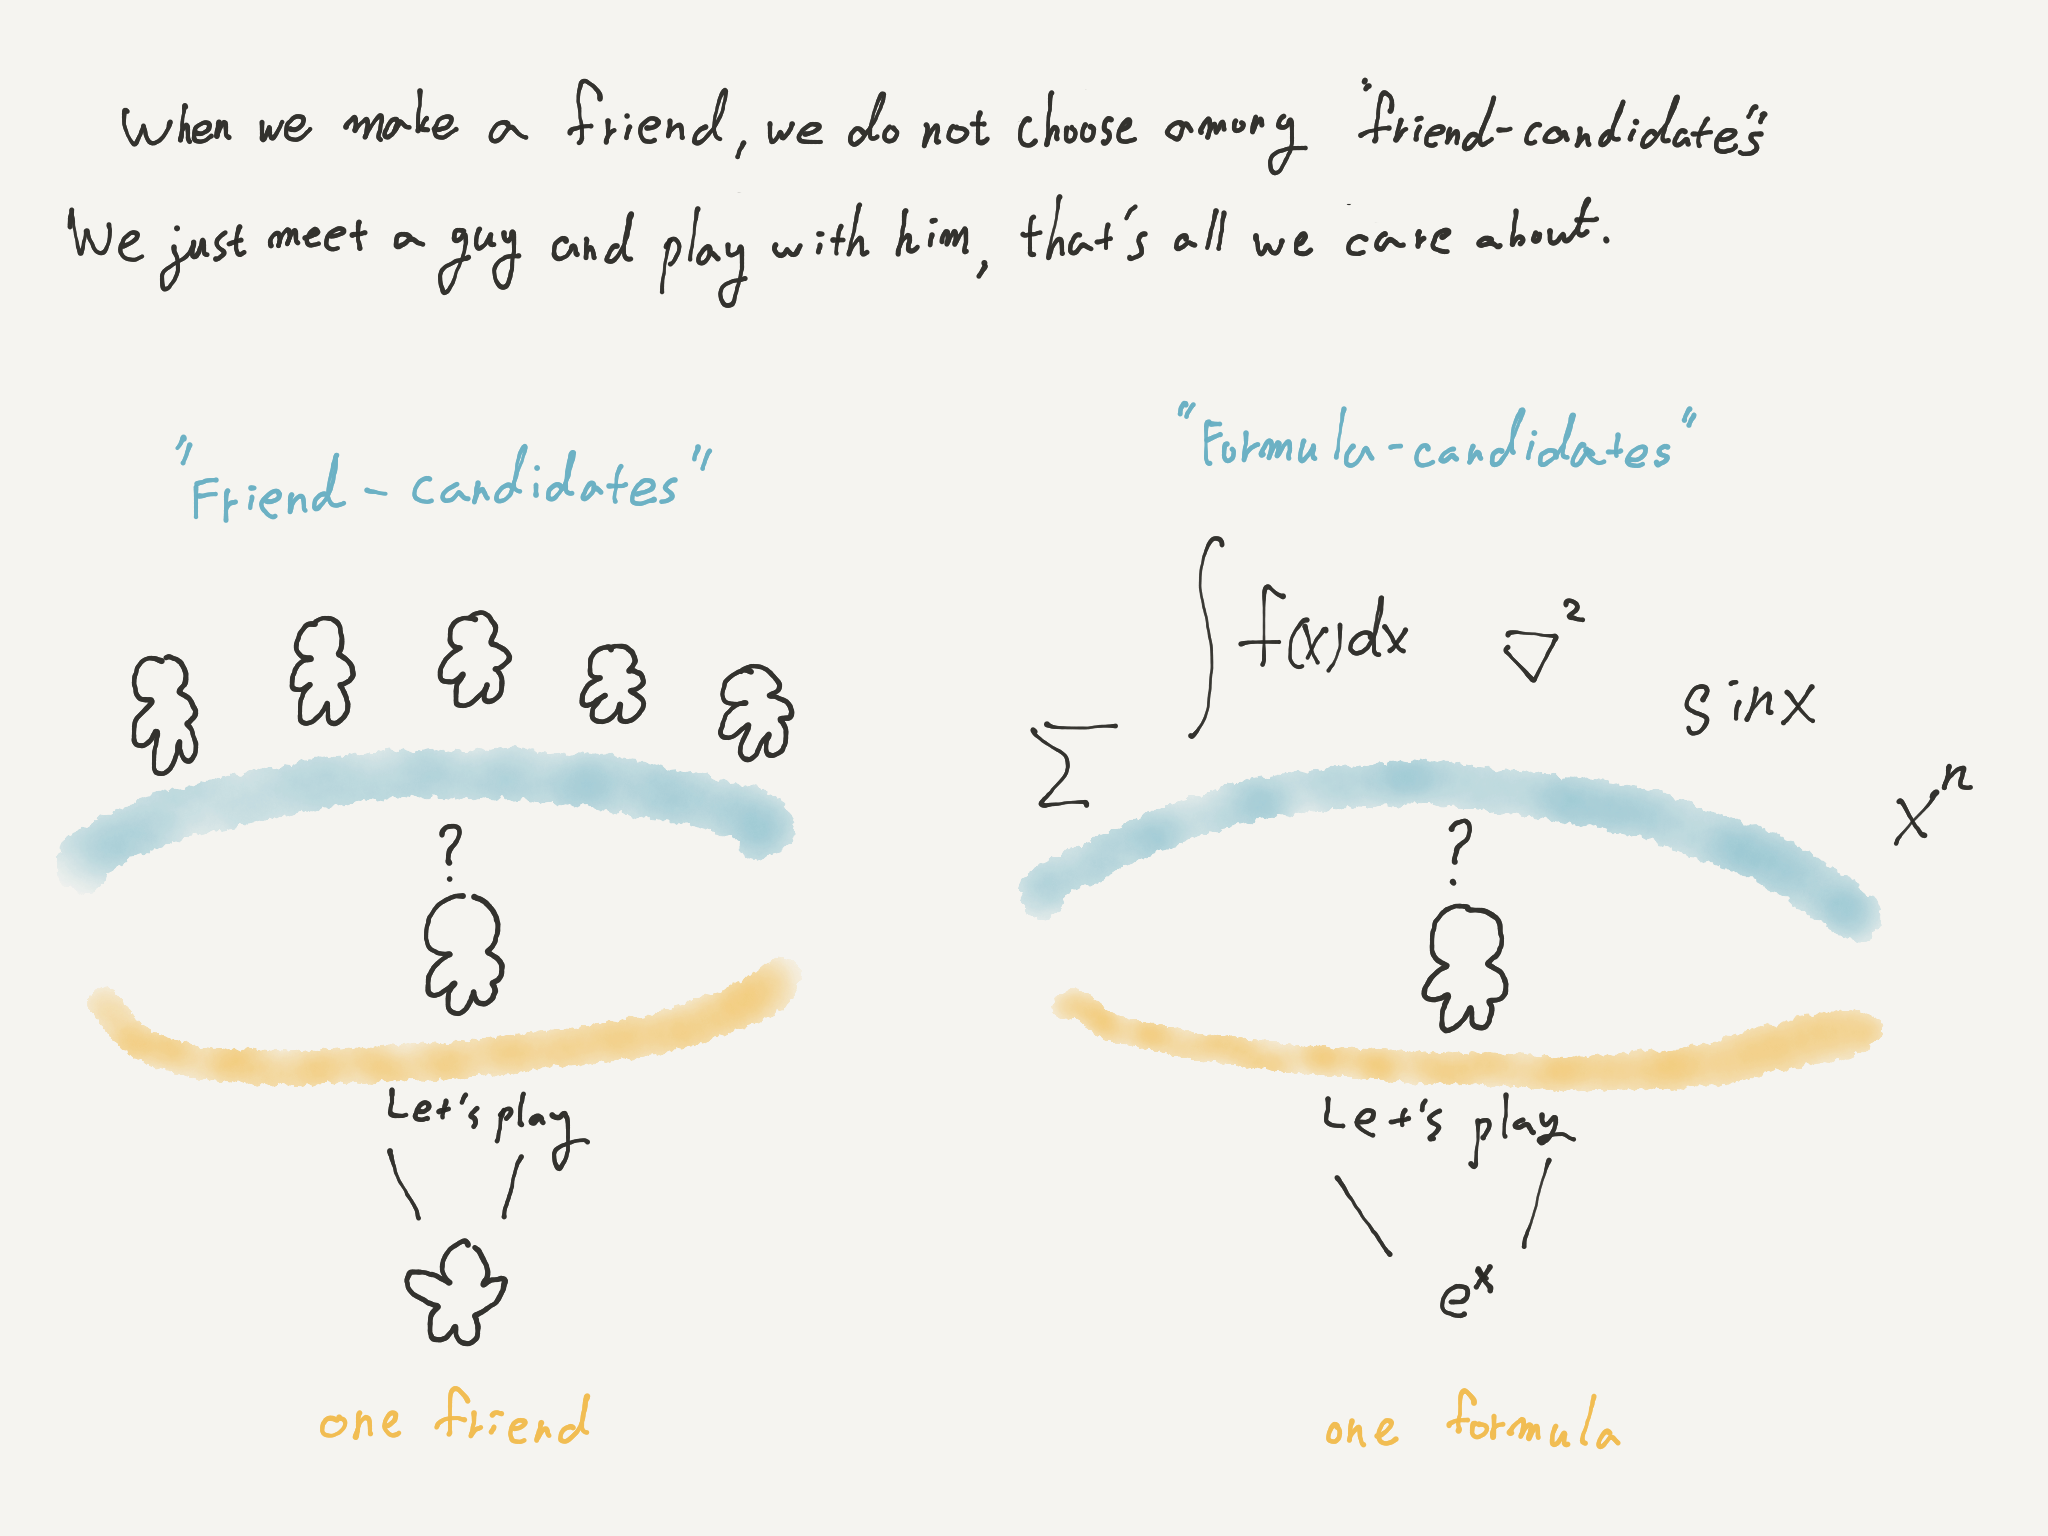 When we make a friend, we do not choose among "friend-candidates"
We just meet a guy and play with him, that's all we care about.
"Friend-candidates"
?
Let's play
one friend
"Formula-candidates"
∑
∫f(x)dx
∇²
sinx
xⁿ
?
Let's play
eˣ
one formula